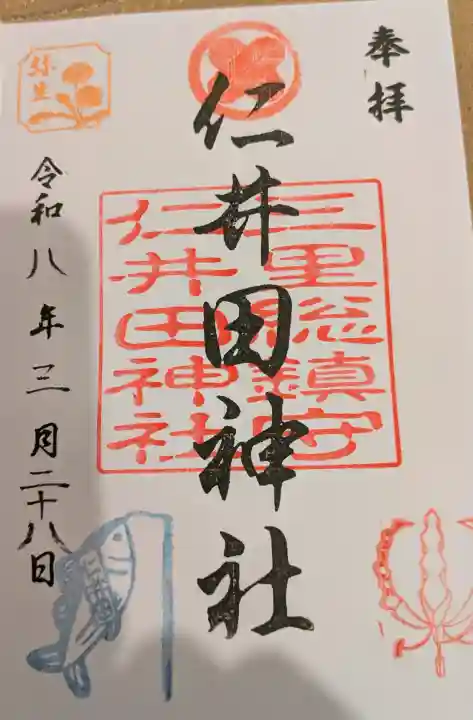 奉拝
仁井田神社
三里総鎮守
仁井田神社
弥生
令和八年三月二十八日